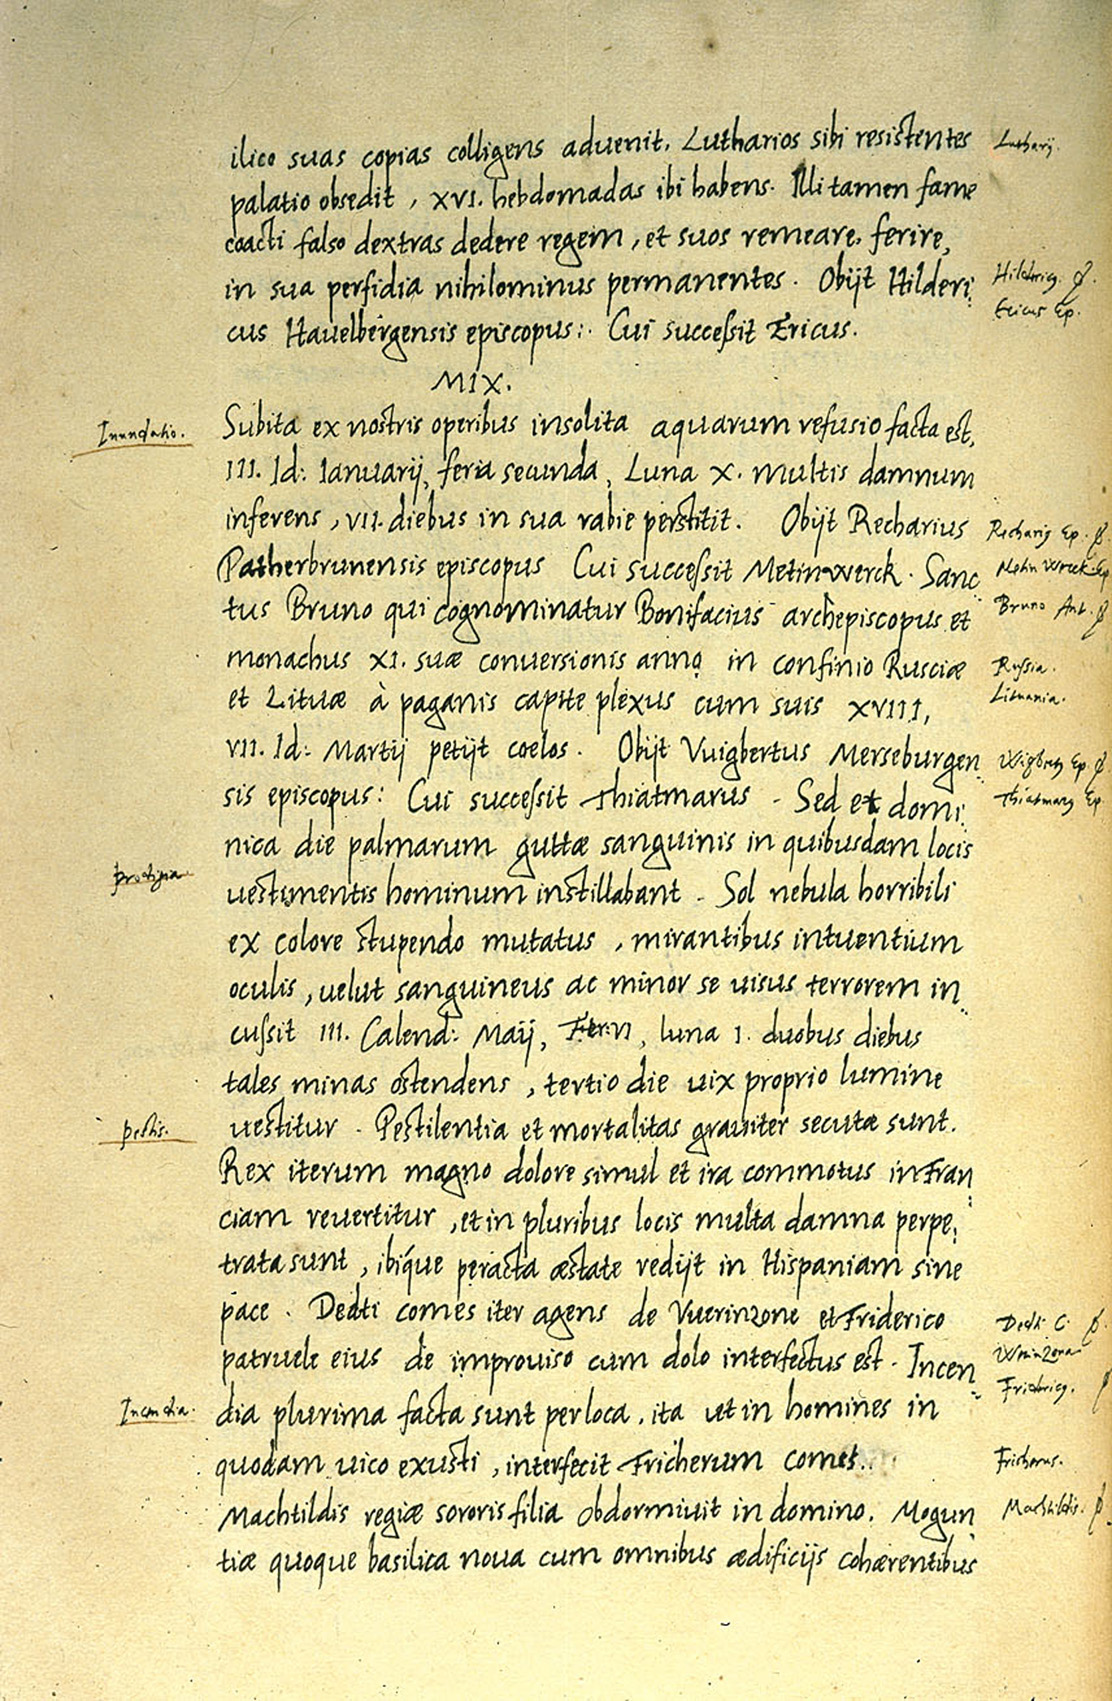 ilico suas copias colligens aduenit. Lutharios sibi resistentes
Lutharij.
palatio obsedit, XVI. hebdomadas ibi habens. Illi tamen fame
coacti falso dextras dedere regem, et suos remeare. ferire,
in sua perfidia nihilominus permanentes. Obijt Hilderi
cus Hauelbergensis episcopus:. Cui successit Ericus.
Ericus Ep.
MIX.
Inundatio.
Subita ex nostris operibus insolita aquarum refusio facta est,
III. Id: Ianuarij, feria secunda, Luna X. multis damnum
inferens, VII. diebus in sua rabie perstitit. Obijt Recharius
Recharig Ep.
Patherbrunensis episcopus Cui successit Metinwerck. Sanc
Metin Werck Ep
tus Bruno qui cognominatur Bonifacius archepiscopus et
Bruno
monachus XI. suæ conuersionis anno in confinio Rusciæ
Russia.
et Lituæ à paganis capite plexus cum suis XVIII,
Lituania.
VII. Id: Martij petijt coelos. Obijt Vuigbertus Merseburgen
Wigbertg Ep.
sis episcopus: Cui successit Thiatmarus. Sed et domi
Thiatmarg Ep.
nica die palmarum guttæ sanguinis in quibusdam locis
prodigia
uestimentis hominum instillabant. Sol nebula horribili
ex colore stupendo mutatus, mirantibus intuentium
oculis, uelut sanguineus ac minor se uisus terrorem in
cussit III. Calend: Maij, Fer: VI, luna I. duobus diebus
tales minas ostendens, tertio die uix proprio lumine
pestis.
uestitur. Pestilentia et mortalitas grauiter secutæ sunt.
Rex iterum magno dolore simul et ira commotus in Fran
ciam reuertitur, et in pluribus locis multa damna perpe,
trata sunt, ibique peracta æstate redijt in Hispaniam sine
pace. Dedti comes iter agens de Vuerinzone et Friderico
Dedti C.
patruele eius de improuiso cum dolo interfectus est. Incen
Fridericg.
Incendia.
dia plurima facta sunt per loca, ita ut in homines in
quodam uico exusti, interfecit Fricherum comes.
Fricherus.
Machtildis regiæ sororis filia obdormiuit in domino. Mogun
Machtildis.
tiæ quoque basilica noua cum omnibus ædificijs cohærentibus